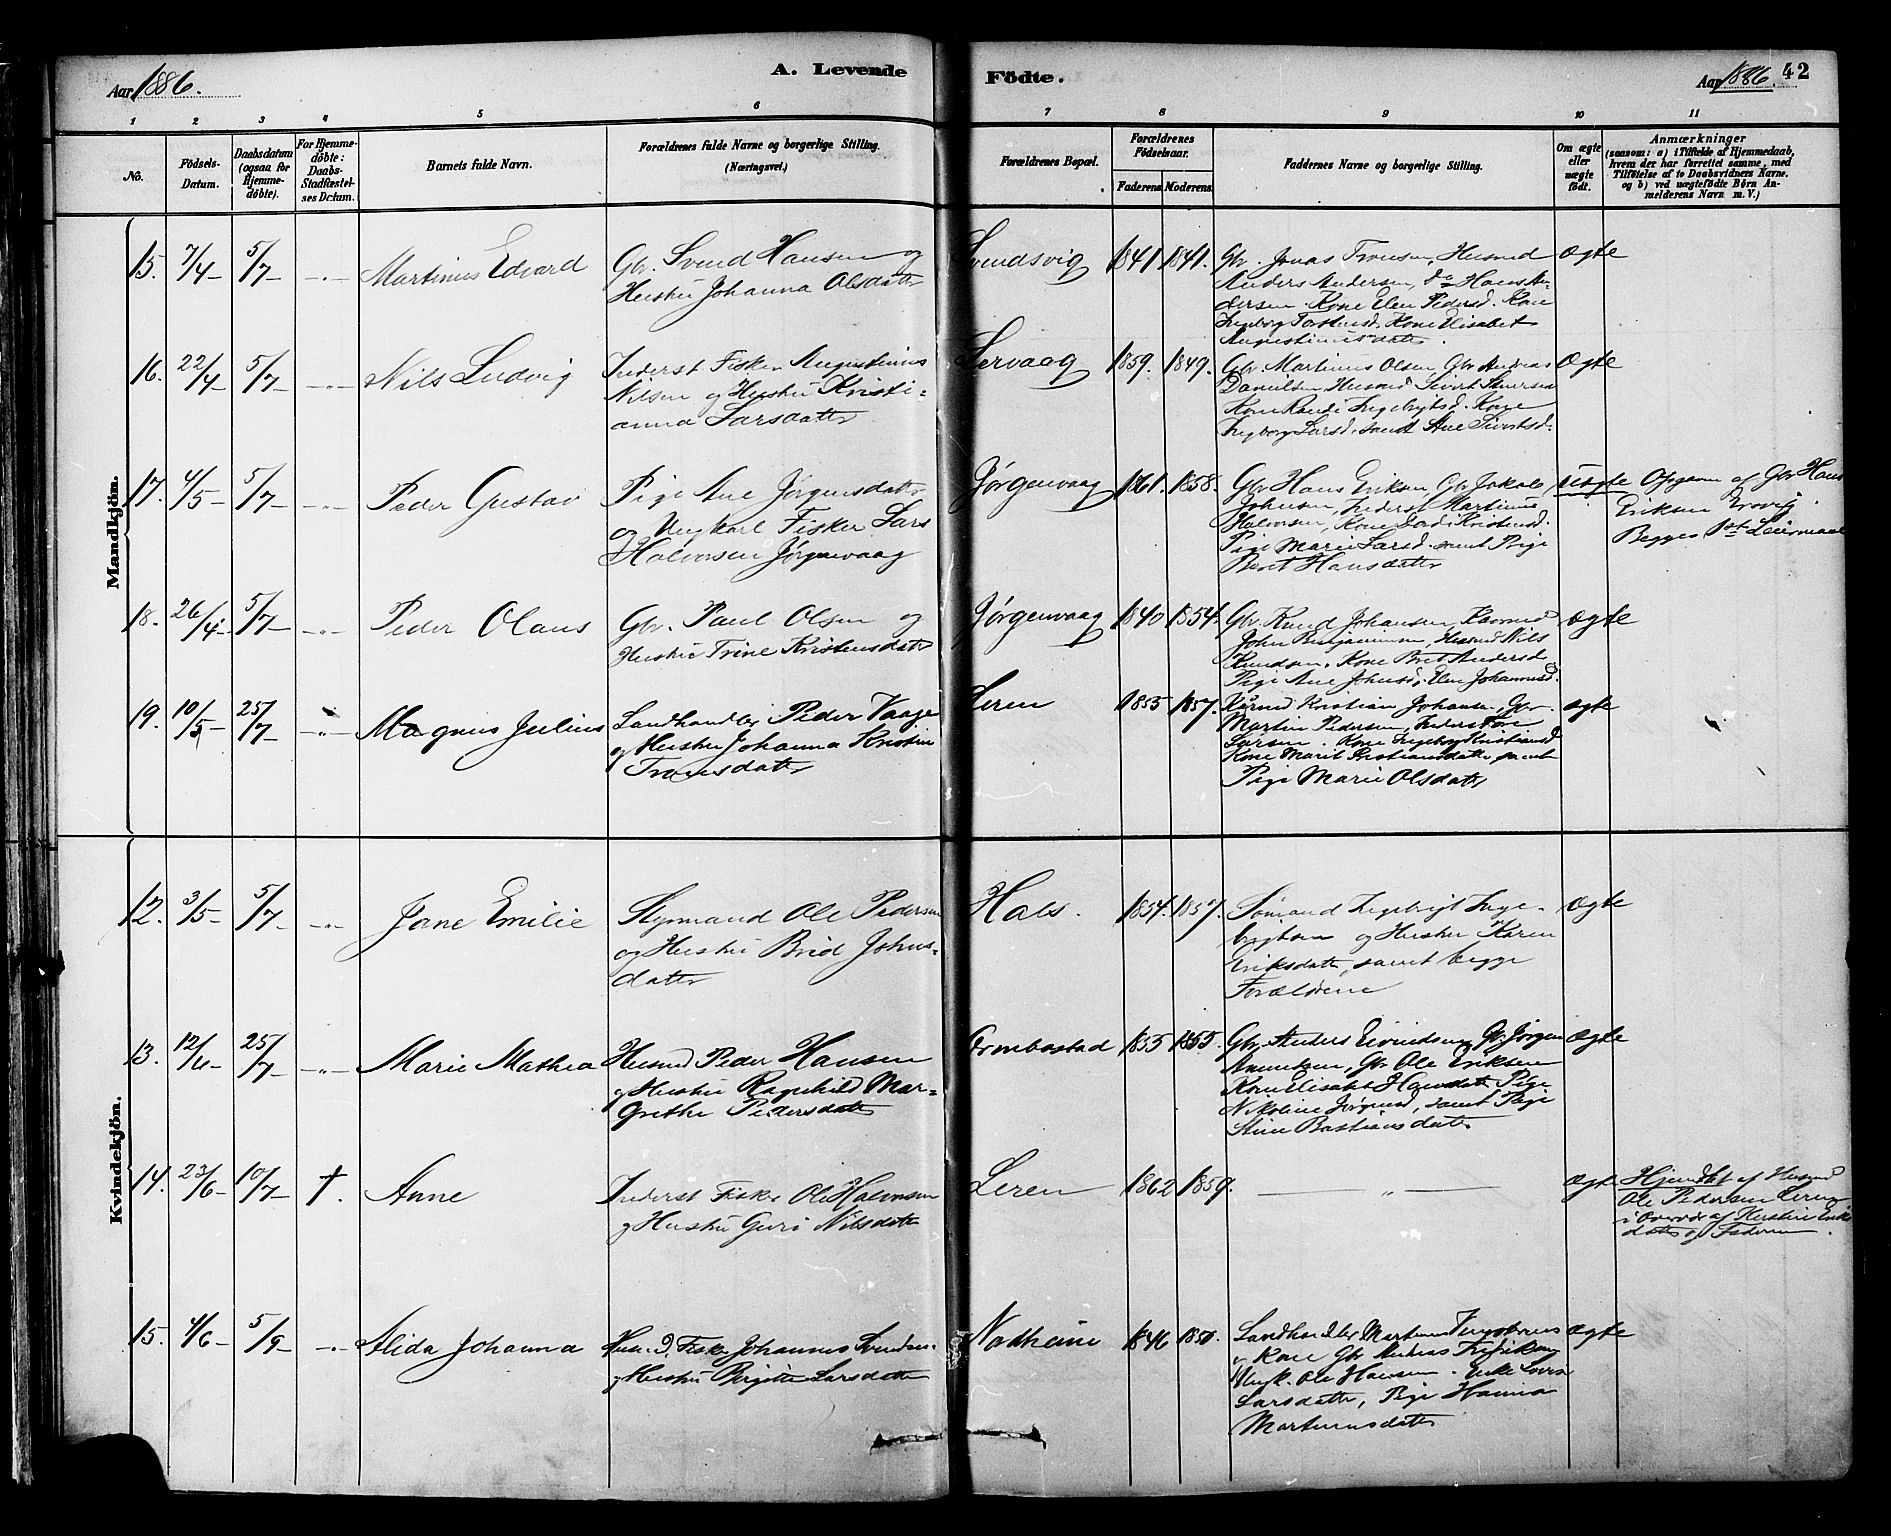 Aar 1886.
A. Levende
Födte.
Aar 1886. 42
1 2 3 4 5 6 7 8 9 10 11
No.
Födsels-
Datum.
Daabsdatum
(ogsaa for
Hjemme-
döbte).
For Hjemme-
döbte:
Daabs-
Stadfæstel-
ses Datum.
Barnets fulde Navn.
Forældrenes fulde Navne og borgerlige Stilling.
(Næringsvei.)
Forældrenes Bopæl.
Forældrenes
Födselsaar.
Faderens. Moderens.
Faddernes Navne og borgerlige Stilling.
Om ægte
eller
uægte
födt.
Anmærkninger
(saasom: a) i Tilfælde af Hjemmedaab,
hvem der har forrettet samme, med
Tilföielse af to Daabsvidners Navne.
og b) ved uægtefödte Börn An-
melderens Navn m. V.)
Mandkjön.
15. 7/4 5/7 Martinus Edvard
Gbr. Svend Hansen og
Hustru Johanna Olsdatter
Svendsvig 1841 1841.
Gbr. Jonas Tronsen, Husmd
Anders Andersen, do Hans An-
dersen. Kone Elen Pedersd. Kone
Ingeborg Torstensd. Kone Elisabet
Augustinusdatter.
Ægte
16. 22/4 5/7 Nils Ludvig
Inderst Fisker Augustinus
Nilsen og Hustru Kristi-
anna Larsdatter
Lervaag 1859. 1849.
Gbr. Martinus Olsen, Gbr Andreas
Danielsen, Husmd Sivert
Kone Randi Ingebrigtsd. Kone
Ingeborg Larsd. samt Ane Sivertsd.
Ægte
17. 4/5 5/7 Peder Gustav
Pige Ane Jørgensdatter
og Ungkarl Fisker Lars
Halvorsen Jørgenvaag
Jørgenvaag 1861. 1858.
Gbr Hans Eriksen, Gbr Jakob
Johnsen, Inderst Martinus
Halvorsen, Kone Kristensd.
Pige Marie Larsd. samt Pige
Beret Hansdatter
Uægte
Opgivn af Gbr Hans
Eriksen
Begges 1ste Leiermaal
18. 26/4 5/7 Peder Olaus
Gbr. Paul Olsen og
Hustru Trine Kristensdatter
Jørgenvaag 1840 1854.
Gbr. Knud Johansen,
John Benjaminsen, Husmd Nils
Knudsen, Kone Bret Andersd
Pige Ane Johnsd, Elen Johannesd.
Ægte
19. 10/5 25/7 Magnus Julius
Landhandler Peder Vaage
og Hustru Johanna Kristine
Tronsdatter
Leren 1855 1857.
Kristian Johansen, Gbr.
Martin Pedersen, Inderst Tore
Larsen. Kone Ingeborg Kristiansd
Kone Marit Kristiansdatter samt
Pige Marie Olsdatter
ægte
Kvindekjön.
12. 3/5 5/7 Jane Emilie
Styrmand Ole Pedersen
og Hustru Brid Johns-
datter
Hals. 1854. 1857.
Sømand Ingebrigt Inge-
brigtsen og Hustru Karen
Eriksdatter, samt begge
Forældrene
Ægte
13. 12/6 25/7 Marie Mathea
Husmd Peder Hansen
og Hustru Ragnhild Mar-
grethe Pedersdatter
Ormbostad 1855 1855.
Gbr. Anders Eivindsen, Gbr. Jørgen
Gbr Ole Eriksen
Kone Elisabet Hansdatter, Pige
Nikoline Jørgensd, samt Pige
Stine Bastiansdatter
Ægte
14. 23/6 10/7 †. Anne
Inderst Fisker Ole Halvorsen
og Hustru Guri Nilsdatter
Leren 1862 1859.
— „ —
Ægte
Hjemdøbt af Husmd
Ole Pedersen Leren
i Overvær af Kirstine Eriks
datter og Faderen.
15. 4/6 5/9 Alida Johanna
Fisker Johannes Svendsen
og Hustru Birgitte Larsdatter
Nordheim 1846 1850.
Landhandler Martinus
og Kone Gbr Andreas
Ungk. Ole Hansen. Enke Lovise
Larsdatter, Pige Hanna
Martinusdatter
Ægte